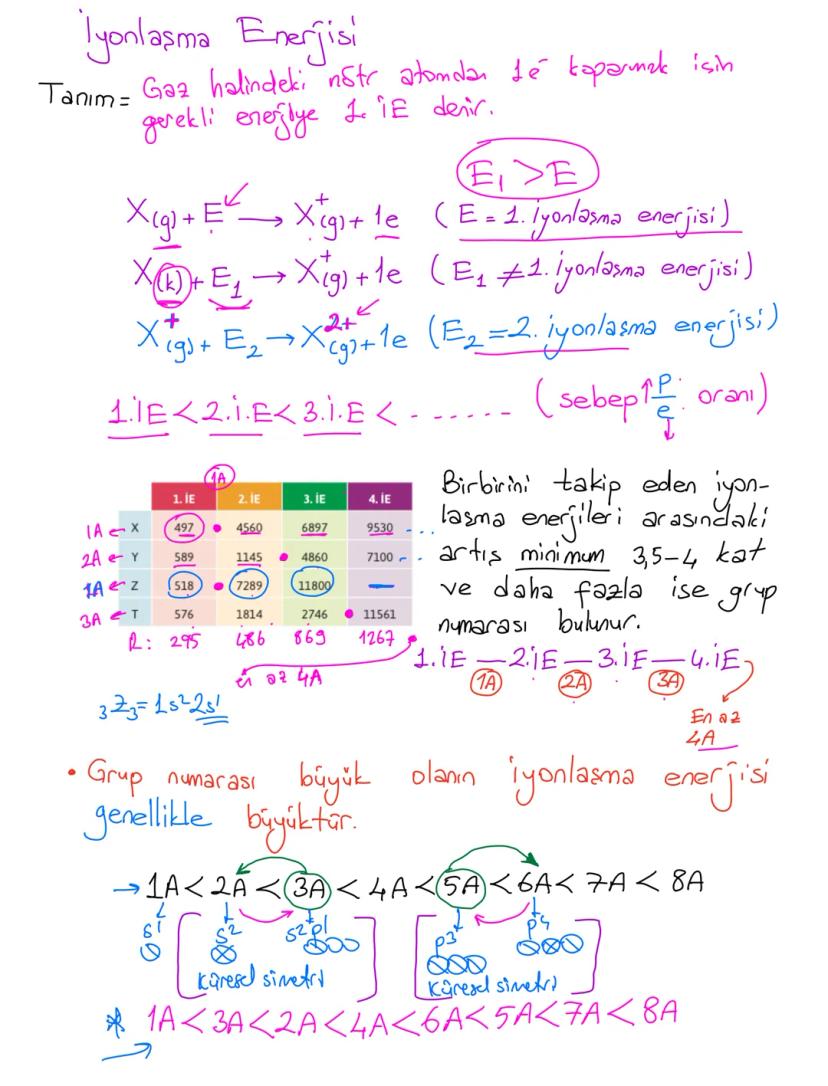 İyonlaşma Enerjisi
Tanım = Gaz halindeki nötr atomdan 1e⁻ koparmak için
gerekli enerjiye 1. İE denir.
E₁ > E
X(g) + E → X⁺(g) + 1e (E = 1. iyonlaşma enerjisi)
X(k) + E₁ → X⁺(g) + 1e (E₁ ≠ 1. iyonlaşma enerjisi)
X⁺(g) + E₂ → X²⁺(g) + 1e (E₂ = 2. iyonlaşma enerjisi)
1.İE < 2.İ.E < 3.İ.E < ...... (sebep ↑ p/e ↓ oranı)
1A
1. İE 2. İE 3. İE 4. İE
1A ← X 497 4560 6897 9530 ...
2A ← Y 589 1145 4860 7100 ...
1A ← Z 518 7289 11800 —
3A ← T 576 1814 2746 11561
R: 295 486 869 1267
en az 4A
Birbirini takip eden iyon-
laşma enerjileri arasındaki
artış minimum 3,5-4 kat
ve daha fazla ise grup
numarası bulunur.
1.İE — 2.İE — 3.İE — 4.İE
1A 2A 3A
En az
4A
₃Z₃ = 1s² 2s¹
• Grup numarası büyük olanın iyonlaşma enerjisi
genellikle büyüktür.
→ 1A < 2A < 3A < 4A < 5A < 6A < 7A < 8A
s¹ s² s²p¹ p³ p⁴
Küresel simetri Küresel simetri
* 1A < 3A < 2A < 4A < 6A < 5A < 7A < 8A